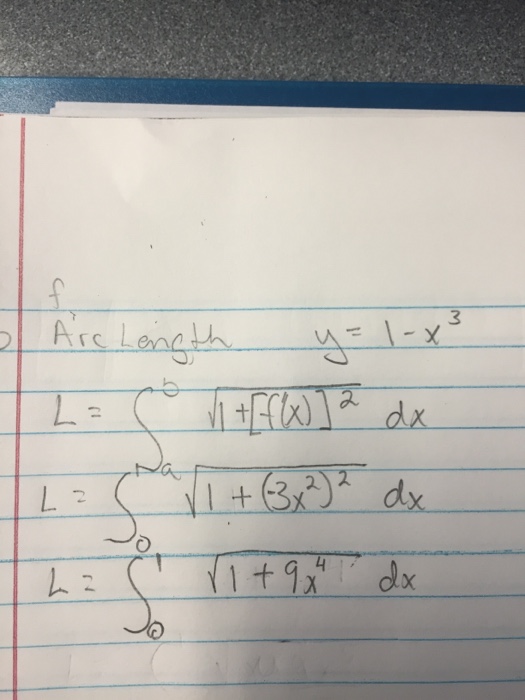 f
Arc Length y = 1 - x³
L = ∫ₐᵇ √(1 + [f'(x)]²) dx
L = ∫₀¹ √(1 + (-3x²)²) dx
L = ∫₀¹ √(1 + 9x⁴) dx